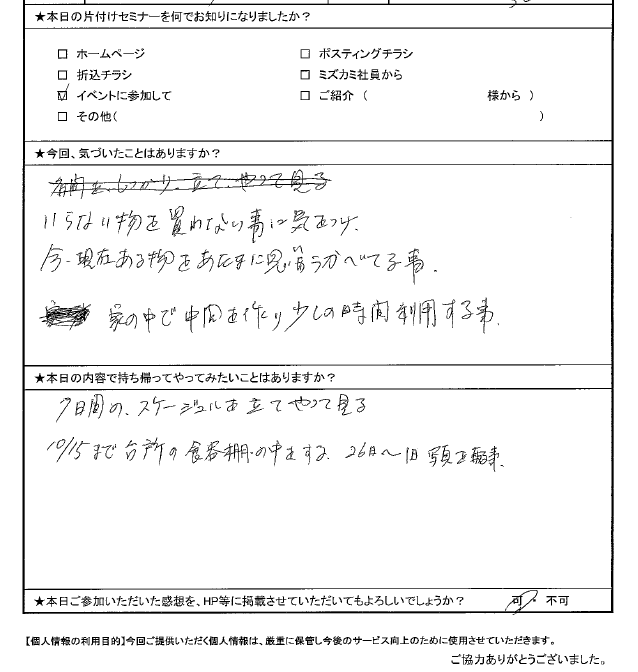 ★本日の片付けセミナーを何でお知りになりましたか？
□ ホームページ □ ポスティングチラシ
□ 折込チラシ □ ミズカミ社員から
☑ イベントに参加して □ ご紹介（ 様から ）
□ その他( )
★今回、気づいたことはありますか？
時間を、しっかり、立て、やって見る
いらない物を買わない事に気をつけ、
今、現在ある物をあたまに思いうかべてる事．
家の中で中間を作り少しの時間利用する事．
★本日の内容で持ち帰ってやってみたいことはありますか？
7日間の、スケージュルを立てやって見る
10/15まで台所の食器棚の中をする、26日〜 写真を
★本日ご参加いただいた感想を、HP等に掲載させていただいてもよろしいでしょうか？ 可・不可
【個人情報の利用目的】今回ご提供いただく個人情報は、厳重に保管し今後のサービス向上のために使用させていただきます。
ご協力ありがとうございました。